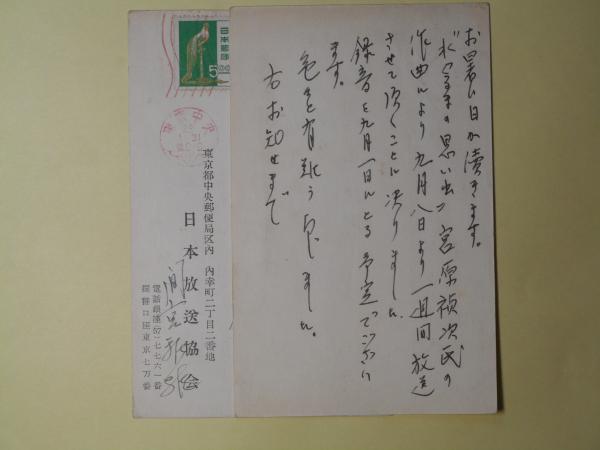 お暑い日が續きます。
の思い出」宮原禎次氏の
作曲により九月八日より一週間放送
させて頂くことに決りました
録音を九月一日にとる予定でござい
ます。
色々と有難うございました。
右お知せまで
日本郵便
5
中央
東京都中央郵便局区内 内幸町二丁目二番地
日本放送協会
電話銀座(57)七七六一番
振替口座東京七万番